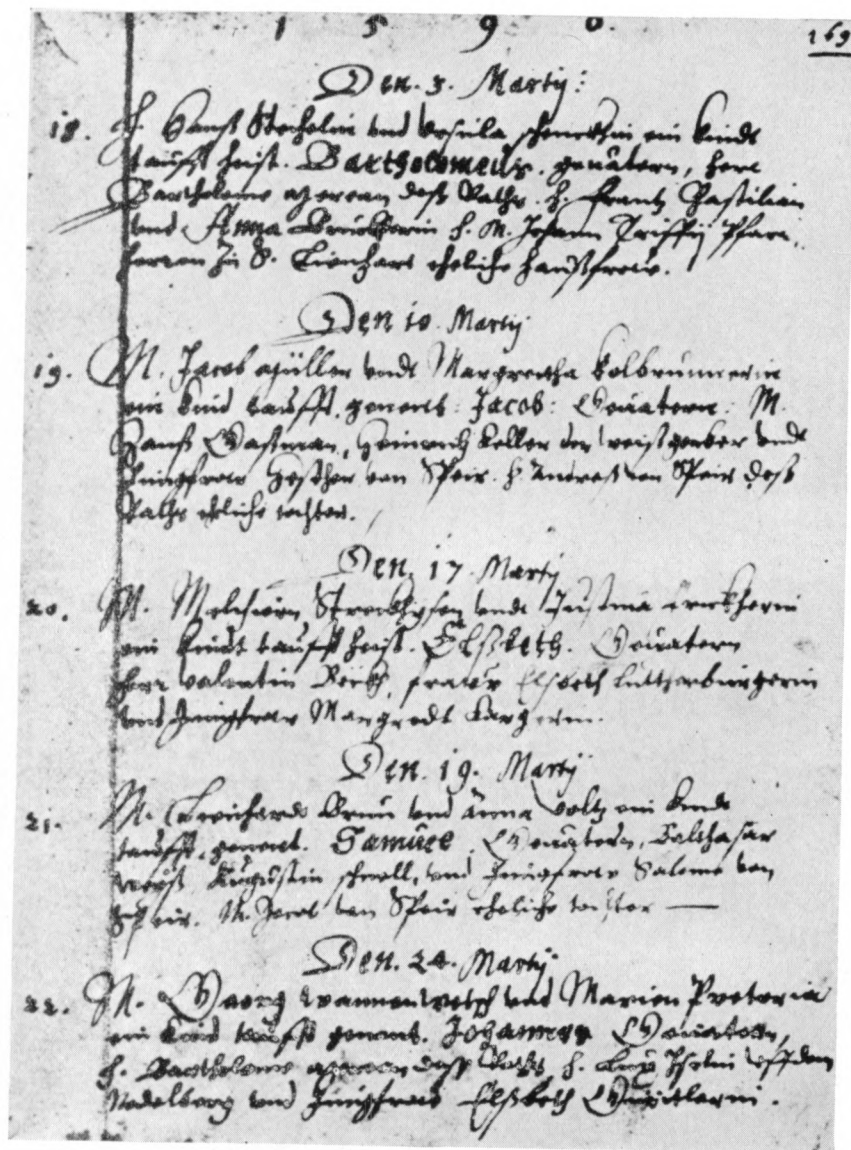 1 5 9 0.
169
Den. 3. Martij:
18. H. Hanß Stechelin vnd Vrsula schenckhin ein kindt
taufft heist. Bartholomeus. geuätern, herr
Bartholome merean deß Raths. H. Frantz Castilian
vnd Anna Bruckherin H. M. Johann Triffij Pfarr,
herren zu S. Lienhart eheliche haußfrow.
Den 10. Martij
19. M. Jacob müller vndt Margretha Kolbrunnerin
ein kind taufft, genent: Jacob: Geuatern: M.
Hanß Gastman, Heinrich keller der weißgerber vndt
Jungfrow Hesther von Speir. H. Andreß von Speir deß
Raths eheliche tochter.
Den 17. Martij
20. M. Melchiorn vndt Justina
ein kindt taufft heist. Elßbeth. Geuatern
herr Valentin frauw Elsbeth Lutterburgerin
vnd Jungfrow Margredt kargerin.
Den. 19. Martij
21. M. Leonhardt Brun vnd Anna voltz ein kindt
taufft, genent. Samuel Geuätern, Balthasar
Augustin schnell, vnd Jungfrow Salome von
Speir. M. Jacob von Speir eheliche tochter —
Den. 24. Martij
22. M. Georg wannenwetsch vnd Marien Pretoria
ein kind taufft genent. Johannes Geuatern,
H. Bartholome merean deß Raths H. Lux Iselin vff dem
Nadelberg vnd Jungfrow Elßbeth